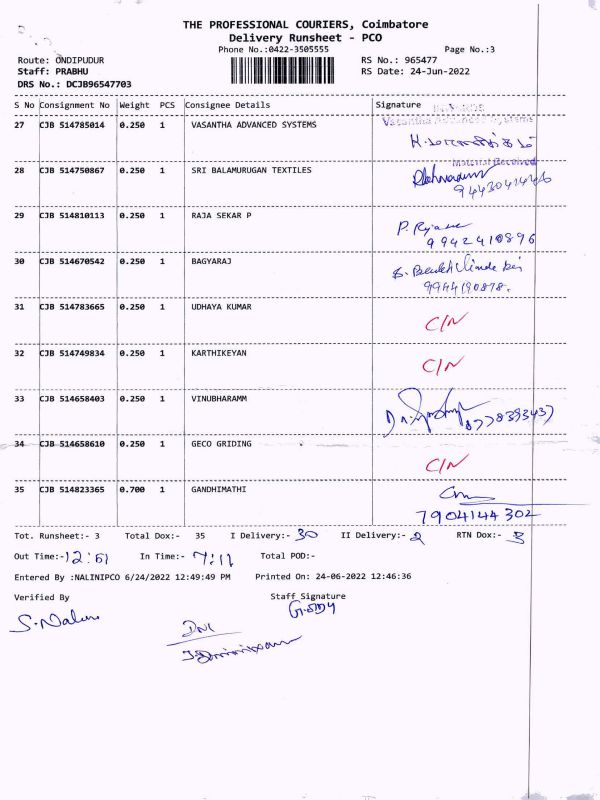 THE PROFESSIONAL COURIERS, Coimbatore
Delivery Runsheet - PCO
Phone No.:0422-3505555 Page No.:3
Route: ONDIPUDUR RS No.: 965477
Staff: PRABHU RS Date: 24-Jun-2022
DRS No.: DCJB96547703
S No Consignment No Weight PCS Consignee Details Signature
Vasantha Advanced Systems
27 CJB 514785014 0.250 1 VASANTHA ADVANCED SYSTEMS
Material Received
28 CJB 514750867 0.250 1 SRI BALAMURUGAN TEXTILES
29 CJB 514810113 0.250 1 RAJA SEKAR P
9942410896
30 CJB 514670542 0.250 1 BAGYARAJ
9944190878.
31 CJB 514783665 0.250 1 UDHAYA KUMAR
C/N
32 CJB 514749834 0.250 1 KARTHIKEYAN
C/N
33 CJB 514658403 0.250 1 VINUBHARAMM
34 CJB 514658610 0.250 1 GECO GRIDING
C/N
35 CJB 514823365 0.700 1 GANDHIMATHI
7904144302
Tot. Runsheet:- 3 Total Dox:- 35 I Delivery:- 30 II Delivery:- 2 RTN Dox:- 3
Out Time:- 12:51 In Time:- 7:11 Total POD:-
Entered By :NALINIPCO 6/24/2022 12:49:49 PM Printed On: 24-06-2022 12:46:36
Verified By Staff Signature
S.Nalini